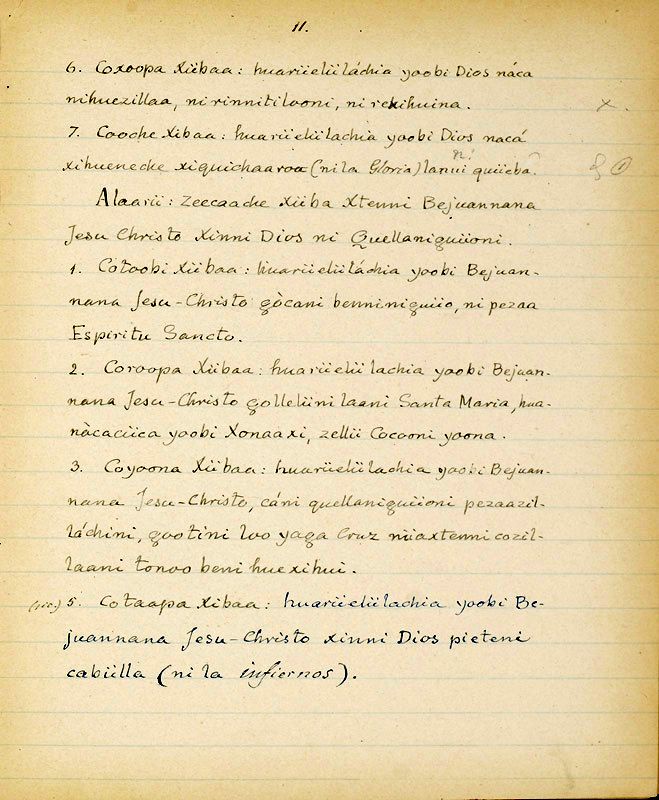 11.
6. Coxoopa Xiibaa: huariieliiláchia yoobi Dios náca
nihuezillaa, ni rinnitilooni, ni rexihuina. x.
7. Cooche Xibaa: huariieliilachia yoobi Dios nacá
xihueneche xiquichaaroa (ni la Gloria) lanii quiieba.
Alaarii: zeecaache Xiiba Xtenni Bejuannana
Jesu Christo Xinni Dios ni Quellaniguiioni.
1. Cotoobi Xiibaa: huariieliiláchia yoobi Bejuan-
nana Jesu-Christo gòcani benniniguiio, ni pezaa
Espiritu Sancto.
2. Coroopa Xiibaa: huariieliilachia yoobi Bejuan-
nana Jesu-Christo golleliini laani Santa Maria, hua-
nàcaciica yoobi Xonaaxi, zellii Cocooni yoona.
3. Coyoona Xiibaa: huariieliilachia yoobi Bejuan-
nana Jesu-Christo, cáni quellaniguiioni pezaazil-
láchini, gootini loo yaga Cruz niiaxtenni cozil-
laani tonoo beni huexihui.
(sic.) 5. Cotaapa Xibaa: huariieliilachia yoobi Be-
juannana Jesu-Christo xinni Dios pieteni
cabiilla (ni la infiernos).